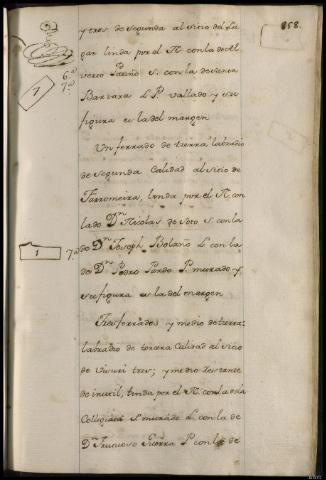 858.
y tres de segunda al sitio del Lu-
gar linda por el N con la de Al
verto Patiño S. con la de Maria
Barvara L P vallado y su
figura es la del margen
6.ª
7.ª
1
Un ferrado de tierra labradio
de segunda Calidad al sitio de
Farromeira, linda por el N. con
la de D.n Nicolas de Soto S. con la
de D.n Joseph Bolaño L. con la
de D.n Pedro Pardo P. murado y
su figura es la del margen
1
7.ª
Tres ferrados y medio de tierra
labradio de tercera Calidad al sitio
de tres; y medio restante
de inutil, linda por el N. con la de la
Collegiata S. murado L. con la de
D.n Fructuoso Guerra P. con la de